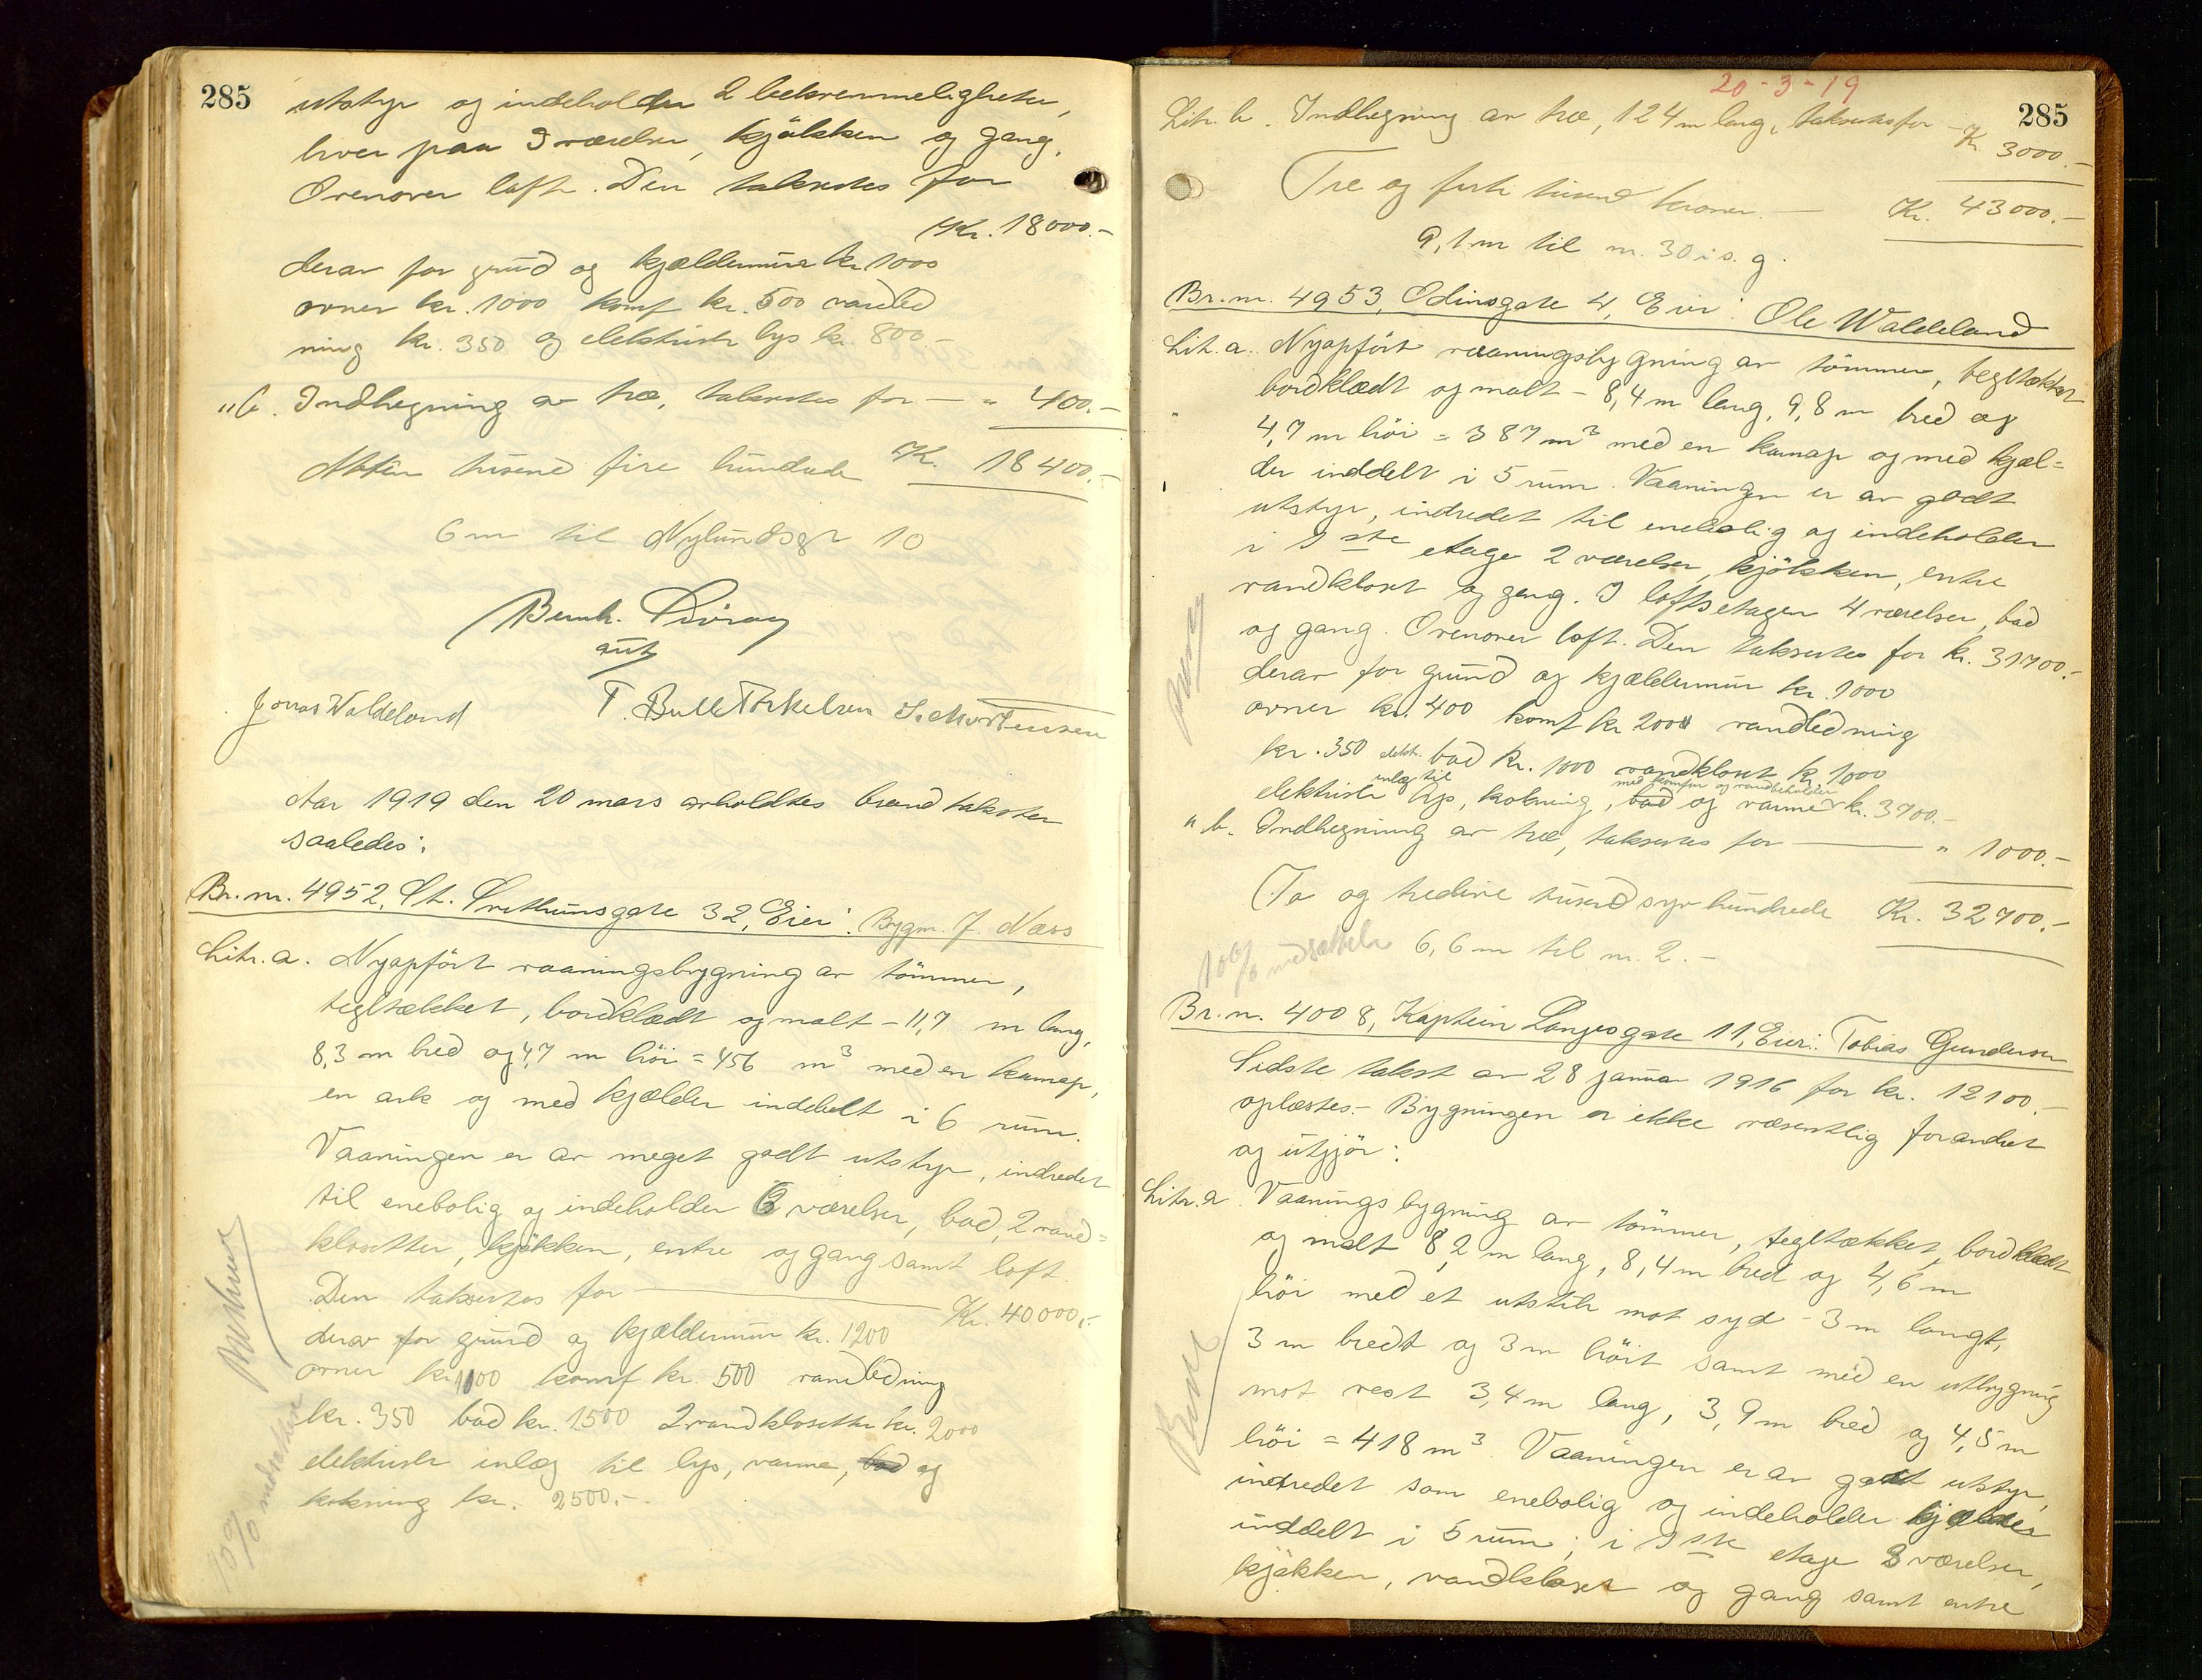 285
utstyr og indeholder 2 bekvemmeligheter,
hver paa 3 værelser, kjökken og gang.
Ovenover loft. Den takseres for
Kr. 18000.-
derav for grund og kjældermur kr. 1000
ovner kr. 1000 komf kr. 500 vandled
ning kr. 350 og elektrisk lys kr. 800.-
" b. Indhegning av træ, takseres for — " 400.-
Atten tusend fire hundrede Kr. 18400.-
6 m til Nylundsgt 10
Bernh.
aut
Jonas Waldeland T. Bull Torkelsen S. Mortensen
Aar 1919 den 20 mars avholdtes brandtakster
saaledes:
Br. nr. 4952, St. Svithunsgate 32, Eier: Bygm. J. Næss
Litr. a. Nyopfört vaaningsbygning av tömmer,
tegltækket, bordklædt og malt - 11,7 m lang,
8,3 m bred og 4,7 m höi = 456 m³ med en karnap,
en ark og med kjælder inddelt i 6 rum.
Vaaningen er av meget godt utstyr, indredet
til enebolig og indeholder 6 værelser, bad, 2 vand=
klosetter, kjökken, entre og gang samt loft.
Den takseres for — Kr. 40000,-
derav for grund og kjældermur kr. 1200
ovner kr. 1100 komf kr. 500 vandledning
kr. 350 bad kr. 1500 2 vandklosetter kr. 2000
elektrisk inlæg til lys, varme, bad og
kokning kr. 2500.-
10% nedsættelse
20-3-19
285
Litr. b. Indhegning av træ, 124 m lang, takseres for - Kr. 3000.-
Tre og firti tusend kroner. — Kr. 43000.-
9,1 m til nr. 30 i s. g.
Br. nr. 4953, Odinsgate 4, Eier: Ole Waldeland
Litr. a. Nyopfört vaaningsbygning av tömmer, tegltækket
bordklædt og malt - 8,4 m lang, 9,8 m bred og
4,7 m höi = 387 m³ med en karnap og med kjæl=
der inddelt i 5 rum. Vaaningen er av godt
utstyr, indredet til enebolig og indeholder
i 1ste etage 2 værelser, kjökken, entre
vandkloset og gang. I loftsetagen 4 værelser, bad
og gang. Ovenover loft. Den takseres for kr. 31700.-
derav for grund og kjældermur kr. 1000
ovner kr. 400 komf kr 200 vandledning
kr. 350 elektr. bad kr. 1000 vandkloset kr. 1000
inlæg til med komfur og vandbeholder
elektrisk lys, kokning, bad og varme kr. 3700.-
" b. Indhegning av træ, takseres for — " 1000.-
To og tredive tusend syv hundrede Kr. 32700.-
10% nedsættelse 6,6 m til nr. 2.-
Br. nr. 4008, Kaptein Langesgate 11, Eier: Tobias Gundersen
Sidste takst av 28 januar 1916 for kr. 12100.-
oplæstes.- Bygningen er ikke væsentlig forandret
og utgjör:
Litr. a. Vaaningsbygning av tömmer, tegltækket, bordklædt
og malt 8,2 m lang, 8,4 m bred og 4,6 m
höi med et utstik mot syd - 3 m langt,
3 m bredt og 3 m höit samt med en utbygning
mot vest 3,4 m lang, 3,9 m bred og 4,5 m
höi = 418 m³. Vaaningen er av godt utstyr,
indredet som enebolig og indeholder kjælder
inddelt i 5 rum; i 1ste etage 3 værelser,
kjökken, vandkloset og gang samt entre